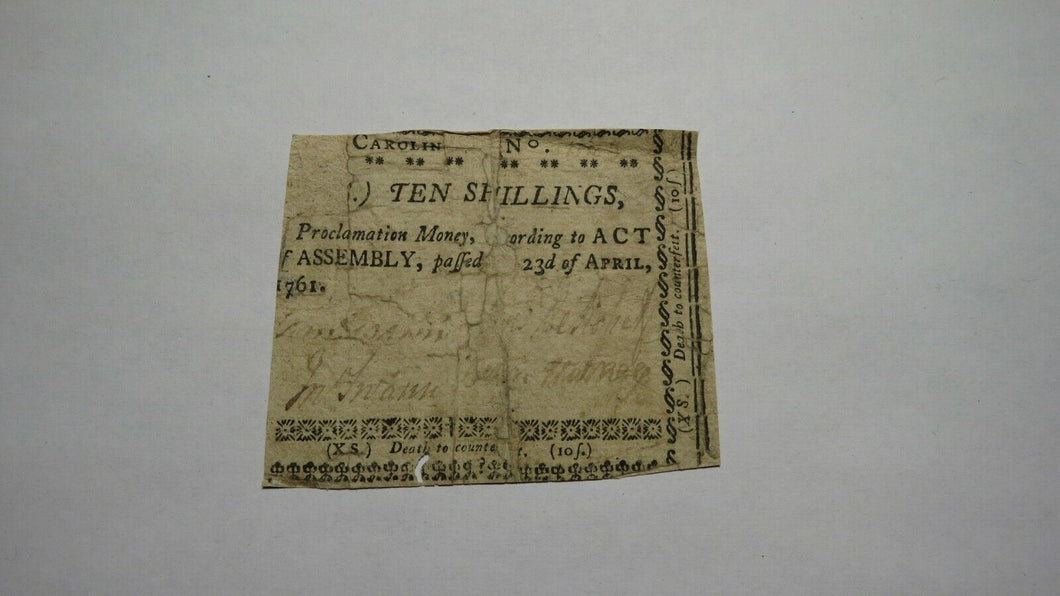 CAROLIN No.
.) TEN SHILLINGS,
Proclamation Money, ording to ACT
f ASSEMBLY, paſſed 23d of APRIL,
1761.
Swann
(X S.) Death to counte t. (10ſ.)
(X S.) Death to counterfeit. (10ſ.)